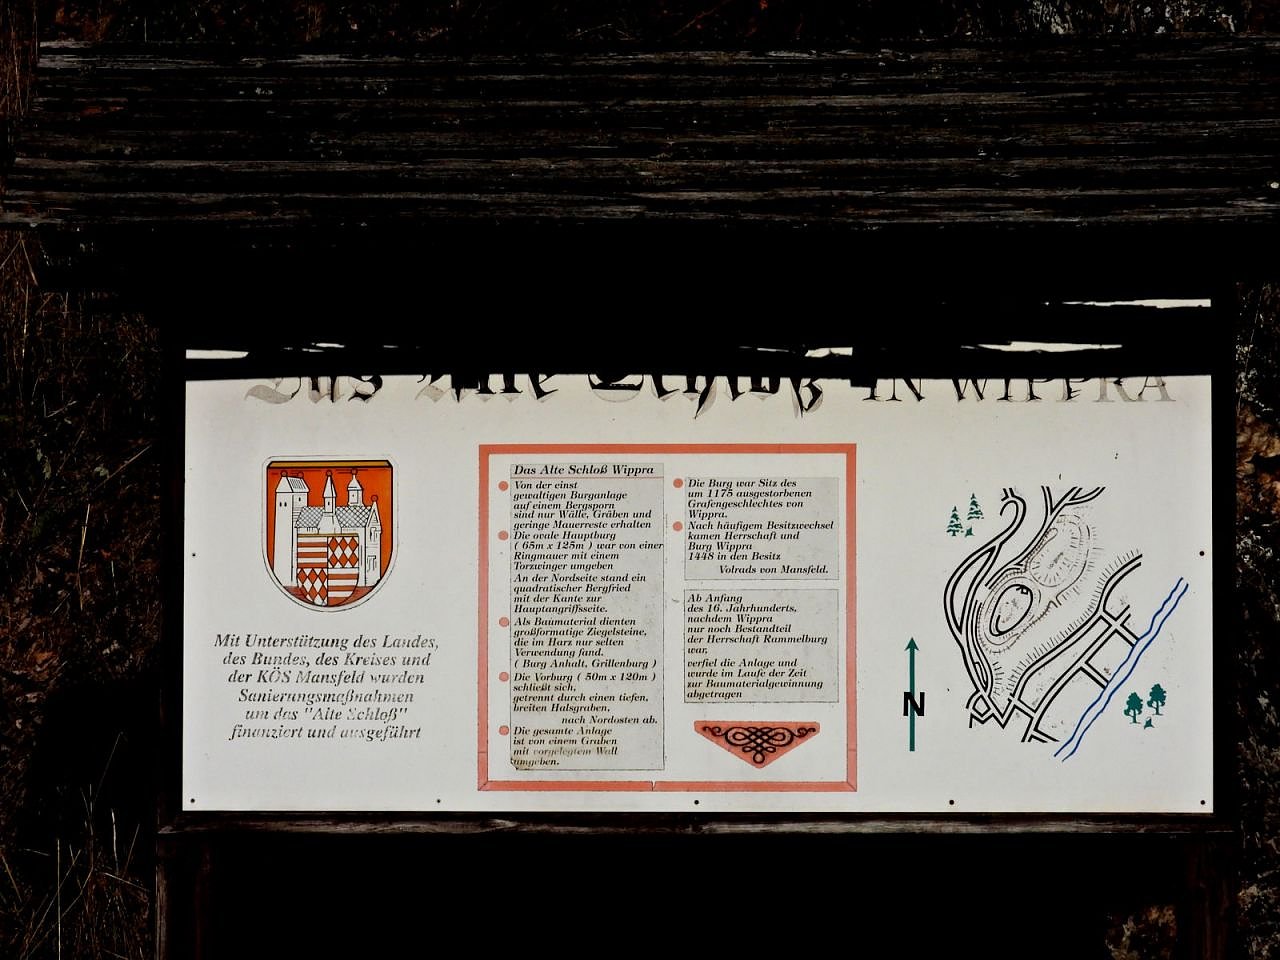 Das Alte Schloß IN WIPPRA
Mit Unterstützung des Landes,
des Bundes, des Kreises und
der KÖS Mansfeld wurden
Sanierungsmaßnahmen
um das "Alte Schloß"
finanziert und ausgeführt
Das Alte Schloß Wippra
Von der einst
gewaltigen Burganlage
auf einem Bergsporn
sind nur Wälle, Gräben und
geringe Mauerreste erhalten
Die ovale Hauptburg
( 65m x 125m ) war von einer
Ringmauer mit einem
Torzwinger umgeben
An der Nordseite stand ein
quadratischer Bergfried
mit der Kante zur
Hauptangriffsseite.
Als Baumaterial dienten
großformatige Ziegelsteine,
die im Harz nur selten
Verwendung fand.
( Burg Anhalt, Grillenburg )
Die Vorburg ( 50m x 120m )
schließt sich,
getrennt durch einen tiefen,
breiten Halsgraben,
nach Nordosten ab.
Die gesamte Anlage
ist von einem Graben
mit vorgelegtem Wall
umgeben.
Die Burg war Sitz des
um 1175 ausgestorbenen
Grafengeschlechtes von
Wippra.
Nach häufigem Besitzwechsel
kamen Herrschaft und
Burg Wippra
1448 in den Besitz
Volrads von Mansfeld.
Ab Anfang
des 16. Jahrhunderts,
nachdem Wippra
nur noch Bestandteil
der Herrschaft Rammelburg
war,
verfiel die Anlage und
wurde im Laufe der Zeit
zur Baumaterialgewinnung
abgetragen
N